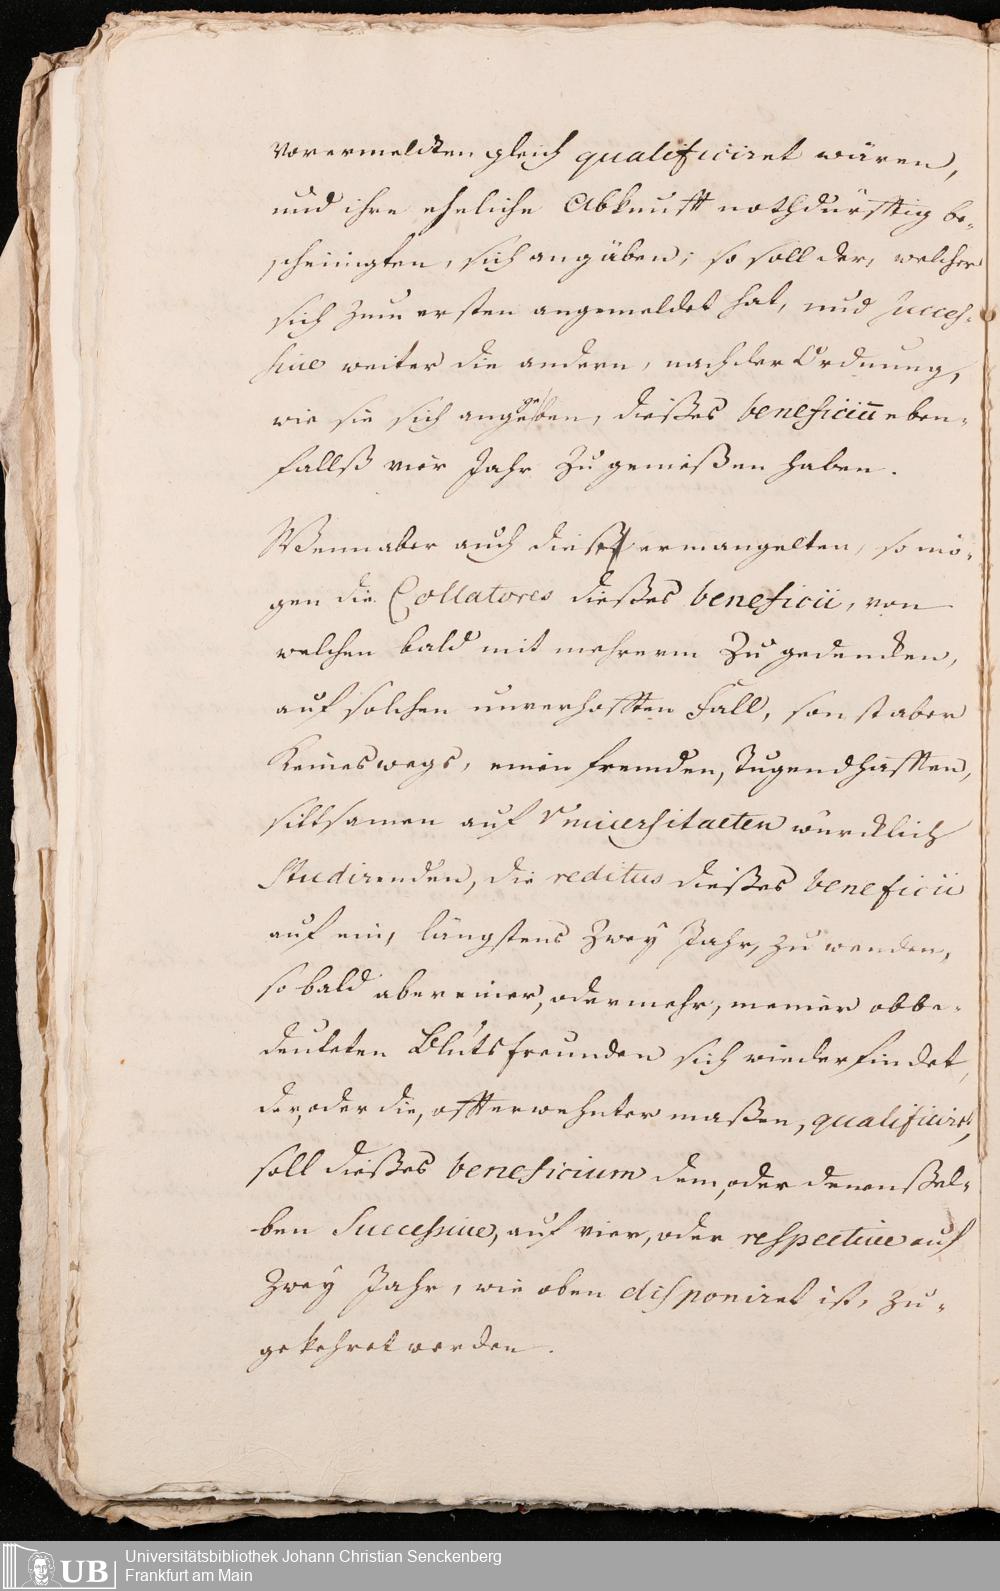 vorermeldten gleich qualificiret wären,
und ihre eheliche Abkunfft nothdürfftig be-
scheinigten, sich angäben; so soll der, welcher
sich zum ersten angemeldet hat, und succes-
sive weiter die andern, nach der Ordnung,
wie sie sich angegeben, dießes beneficiū eben-
fallß vier Jahr zu genießen haben.
Wenn aber auch diese ermangelten, so mö-
gen die Collatores dießes beneficii, von
welchen bald mit mehrerm zu gedencken,
auf solchen unverhofften Fall, sonst aber
keineswegs, einen fremden, Tugendhafften,
sittsamen auf Universitaeten würcklich
Studirenden, die reditus dießes beneficii
auf ein, längstens zwey Jahr, zu wenden,
so bald aber einer, oder mehr, meiner obbe-
deuteten Blutsfreunden sich wieder findet,
der, oder die, offterwehnter maßen, qualificiret,
soll dießes beneficium dem, oder denenßel-
ben Successive, auf vier, oder respective auf
zwey Jahr, wie oben disponiret ist, zu-
gekehret werden.
Universitätsbibliothek Johann Christian Senckenberg
Frankfurt am Main
UB